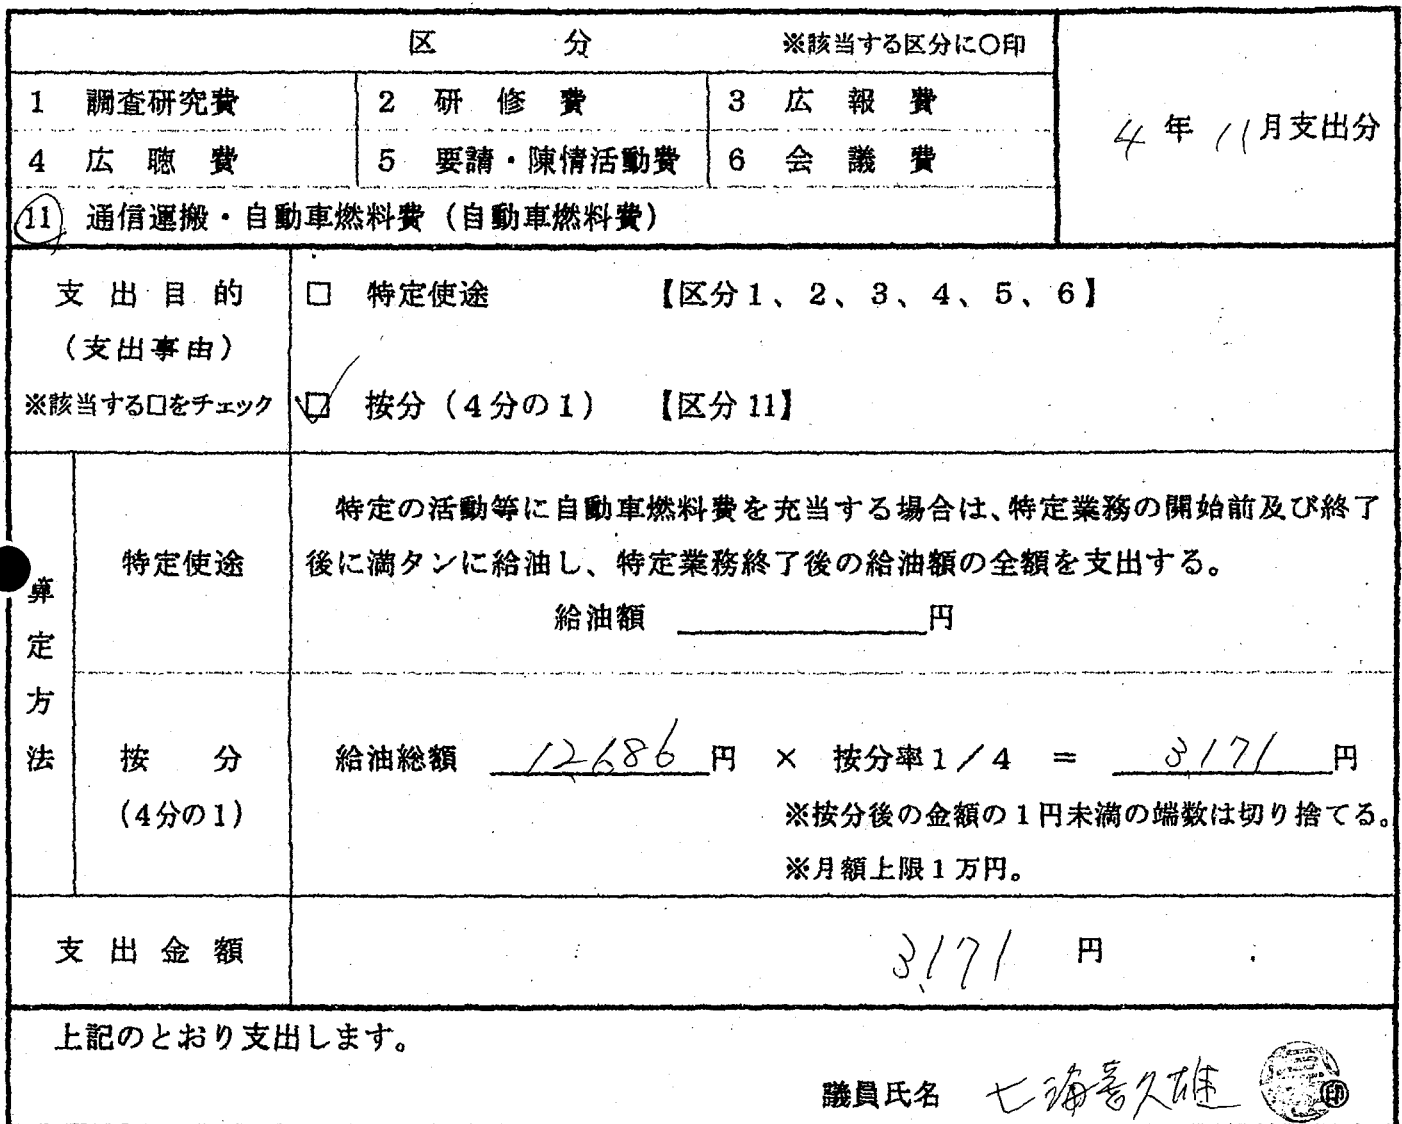 区 分 ※該当する区分に○印
1 調査研究費 2 研修費 3 広報費
4年11月支出分
4 広聴費 5 要請・陳情活動費 6 会議費
11 通信運搬・自動車燃料費(自動車燃料費)
支出目的
(支出事由)
※該当する□をチェック
□ 特定使途 【区分1、2、3、4、5、6】
□ 按分(4分の1) 【区分11】
算定方法
特定使途
特定の活動等に自動車燃料費を充当する場合は、特定業務の開始前及び終了
後に満タンに給油し、特定業務終了後の給油額の全額を支出する。
給油額 円
按分
(4分の1)
給油総額 12,686円 × 按分率1/4 = 3,171円
※按分後の金額の1円未満の端数は切り捨てる。
※月額上限1万円。
支出金額 3,171円
上記のとおり支出します。
議員氏名 七海喜久雄 印